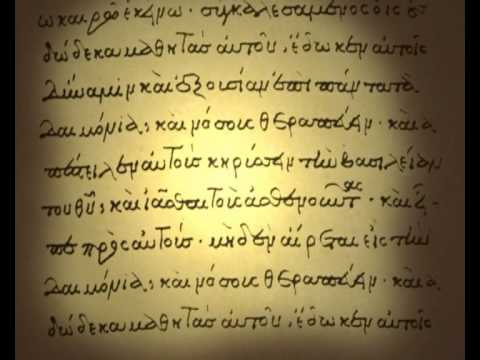 ω καιρῶ ἐκείνω · συγκαλεσάμενος ὁ ις
δώδεκα μαθητὰς αὐτοῦ, ἔδωκεν αὐτοῖς
δύναμιν καὶ ἐξουσίαν ἐπὶ πάντα τὰ
δαιμόνια, καὶ νόσους θεραπεύειν · καὶ ἀ
πέστειλεν αὐτοὺς κηρύσσειν τὴν βασιλείαν
τοῦ θυ, καὶ ἰᾶσθαι τοὺς ἀσθενοῦντας · καὶ εἶ
πε πρὸς αὐτούς · μηδὲν αἴρεται εἰς τὴν
δαιμόνια, καὶ νόσους θεραπεύειν · καὶ ἀ
δώδεκα μαθητὰς αὐτοῦ, ἔδωκεν αὐτοῖς